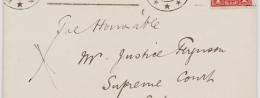 The Honourable
Mr. Justice Ferguson
Supreme Court